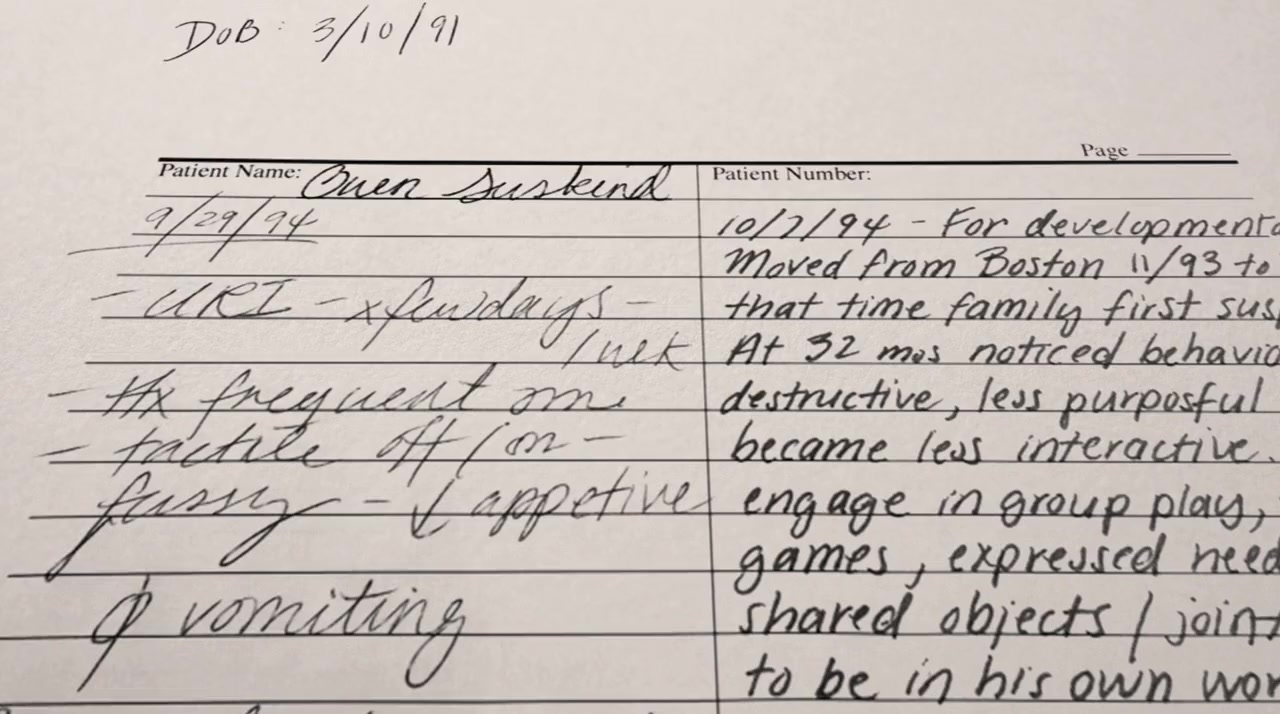 DOB: 3/10/91
Page
Patient Name: Owen Suskind
9/29/94
- URI - x few days -
/wek
- Hx frequent om
- tactile off/on -
fussy - ↓ appetive
ϕ vomiting
Patient Number:
10/7/94 - For developmenta
Moved from Boston 11/93 to
that time family first sus
At 32 mos noticed behavio
destructive, less purposful
became less interactive.
engage in group play,
games, expressed need
shared objects / joint
to be in his own wor